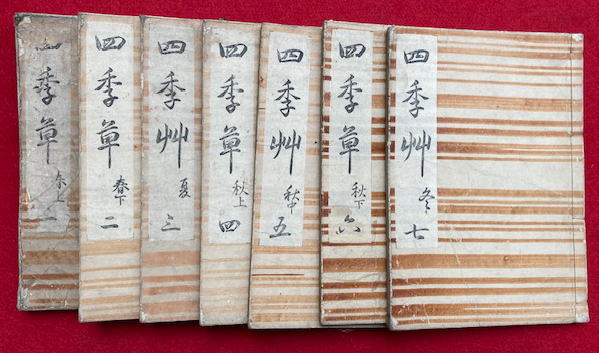 四季草 春上 一
四季草 春下 二
四季艸 夏 三
四季草 秋上 四
四季艸 秋中 五
四季草 秋下 六
四季艸 冬 七